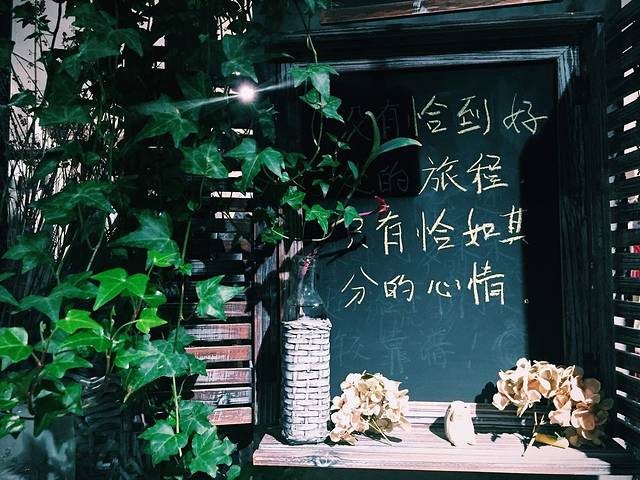 没有恰到好
处的旅程
只有恰如其
分的心情.